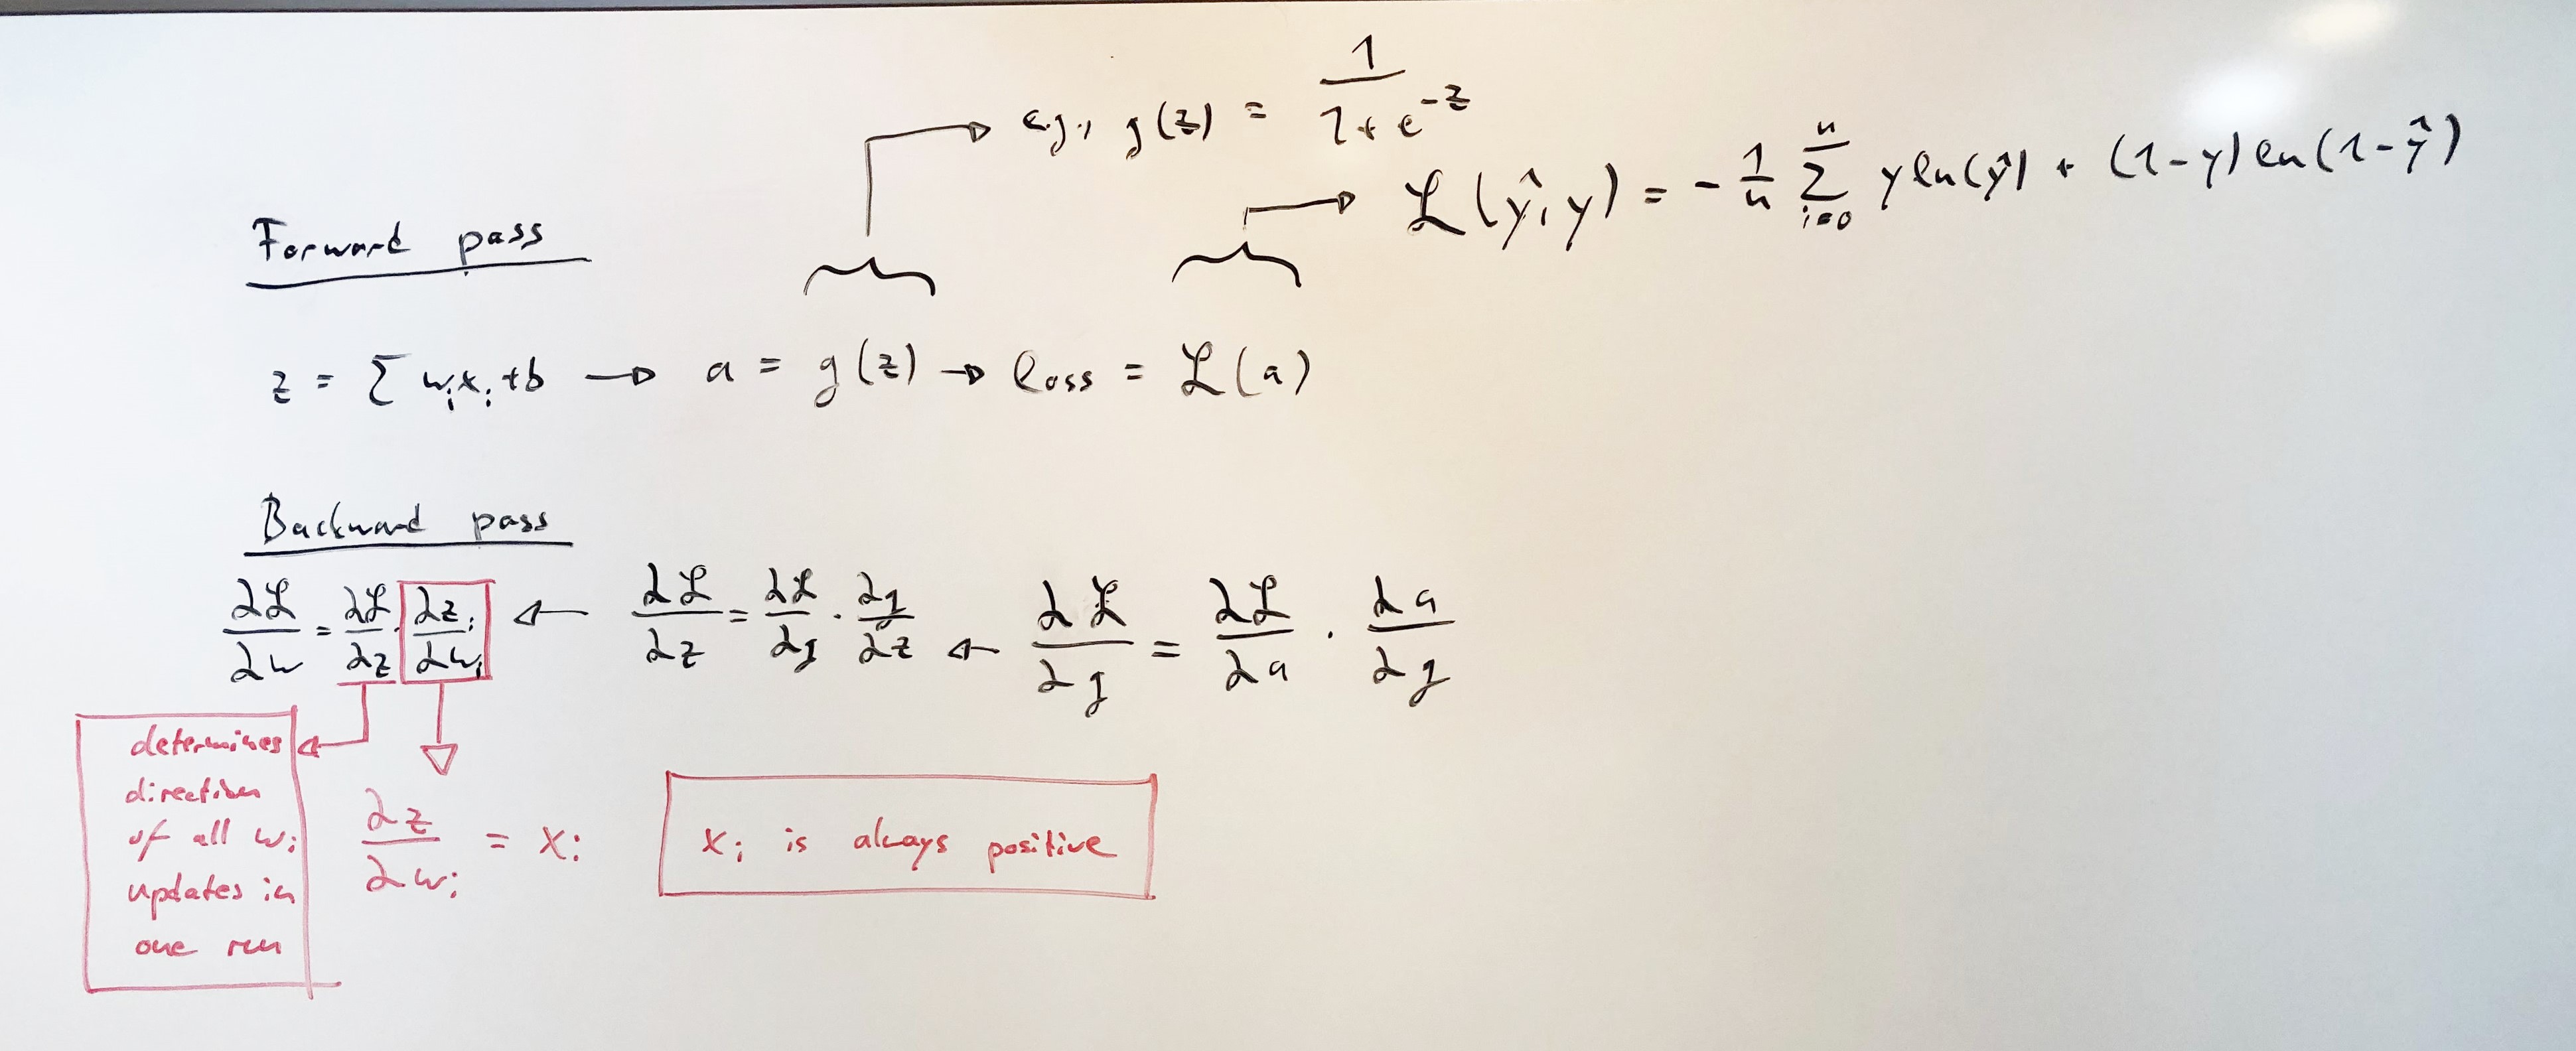 e.g., g(z) = 1 / 1+e^-z
ℒ(ŷ,y) = - 1/n Σ_{i=0}^{n} y ln(ŷ) + (1-y) ln(1-ŷ)
Forward pass
z = Σ w_i x_i + b → a = g(z) → loss = ℒ(a)
Backward pass
∂ℒ/∂w = ∂ℒ/∂z · ∂z_i/∂w_i ← ∂ℒ/∂z = ∂ℒ/∂g · ∂g/∂z ← ∂ℒ/∂g = ∂ℒ/∂a · ∂a/∂g
determines
direction
of all w_i
updates in
one run
∂z/∂w_i = x_i
x_i is always positive